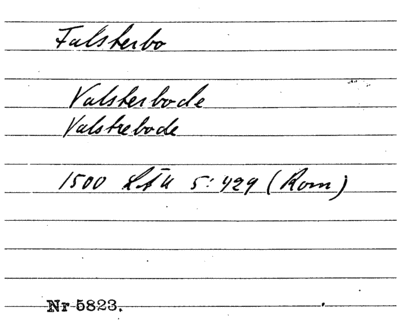 Falsterbo
Valsterbode
Valstrebode
1500 LÅU 5:429 (Rom)
Nr 5823.